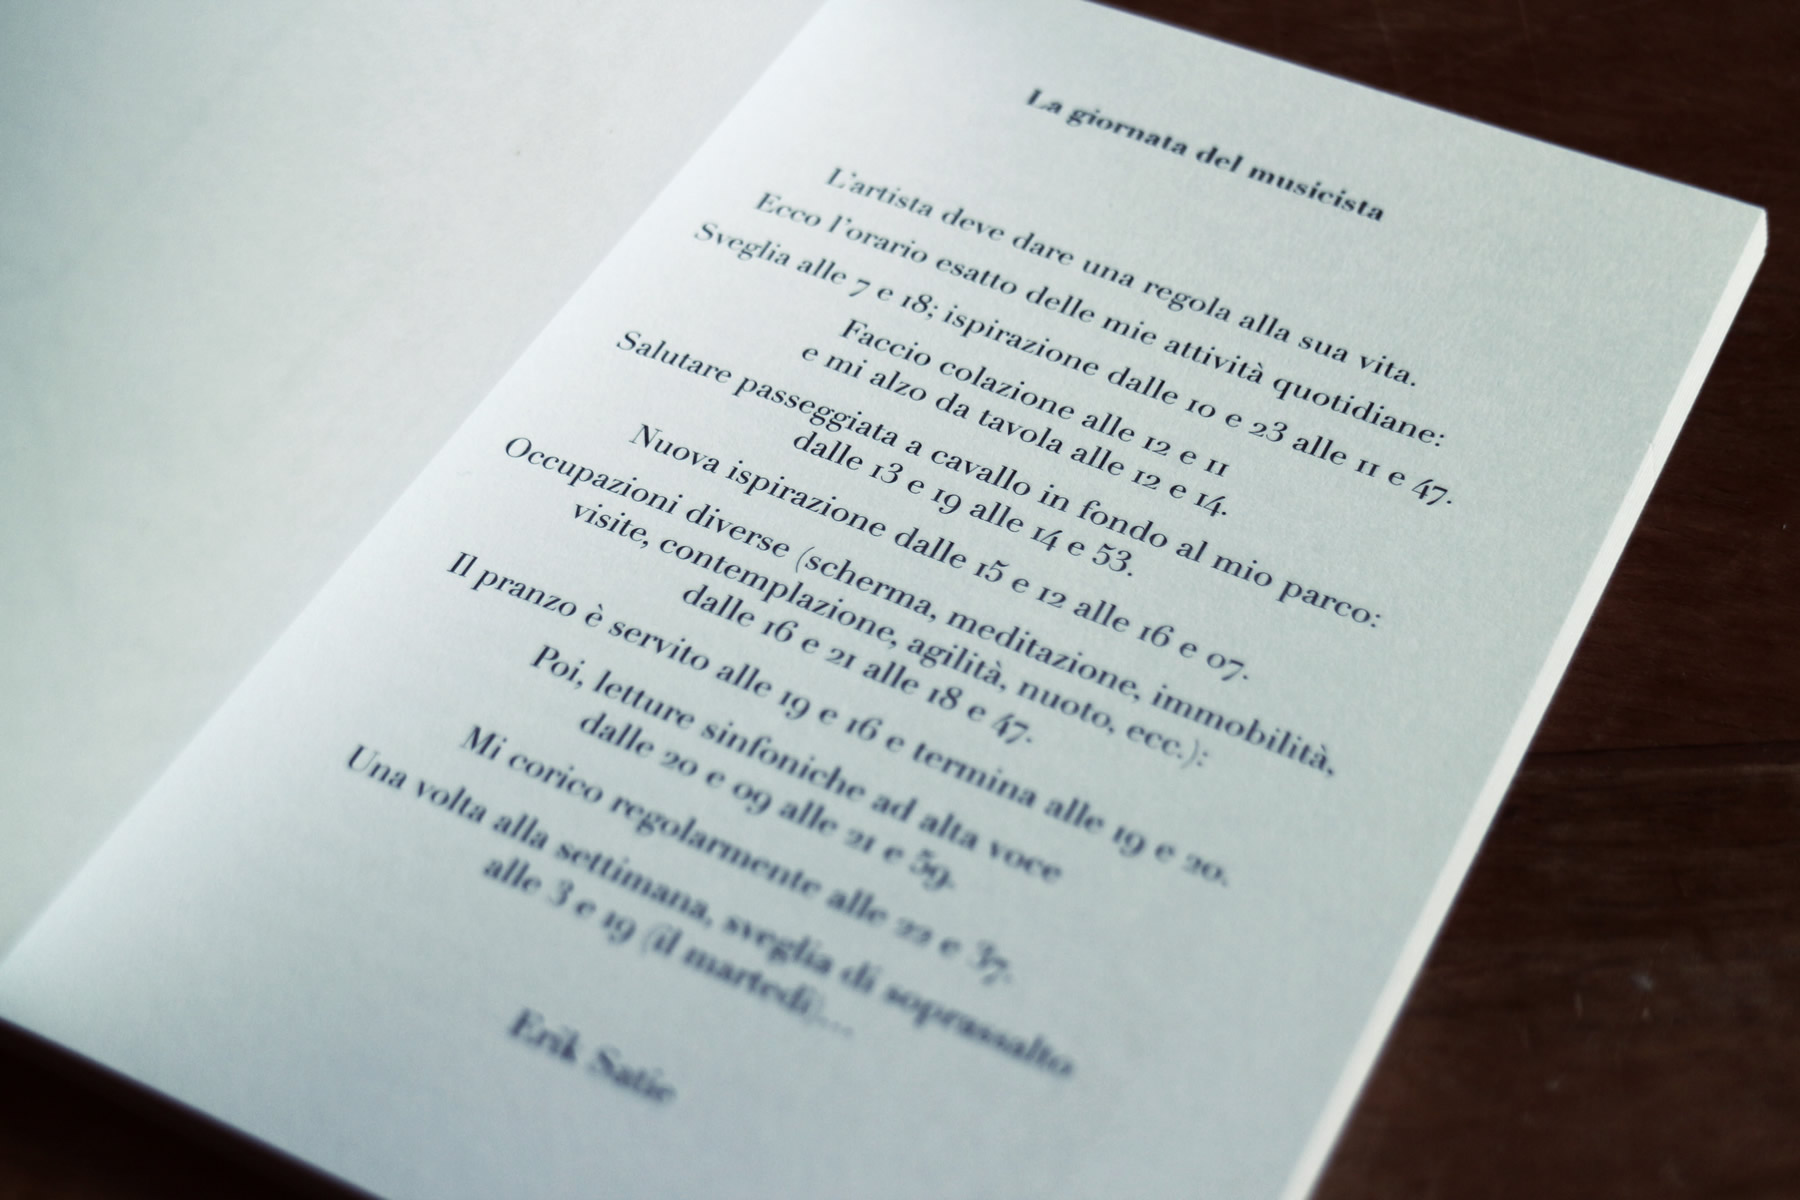 La giornata del musicista
L'artista deve dare una regola alla sua vita.
Ecco l'orario esatto delle mie attività quotidiane:
Sveglia alle 7 e 18; ispirazione dalle 10 e 23 alle 11 e 47.
Faccio colazione alle 12 e 11
e mi alzo da tavola alle 12 e 14.
Salutare passeggiata a cavallo in fondo al mio parco:
dalle 13 e 19 alle 14 e 53.
Nuova ispirazione dalle 15 e 12 alle 16 e 07.
Occupazioni diverse (scherma, meditazione, immobilità,
visite, contemplazione, agilità, nuoto, ecc.):
dalle 16 e 21 alle 18 e 47.
Il pranzo è servito alle 19 e 16 e termina alle 19 e 20.
Poi, letture sinfoniche ad alta voce
dalle 20 e 09 alle 21 e 59.
Mi corico regolarmente alle 22 e 37.
Una volta alla settimana, sveglia di soprassalto
alle 3 e 19 (il martedì)...
Erik Satie